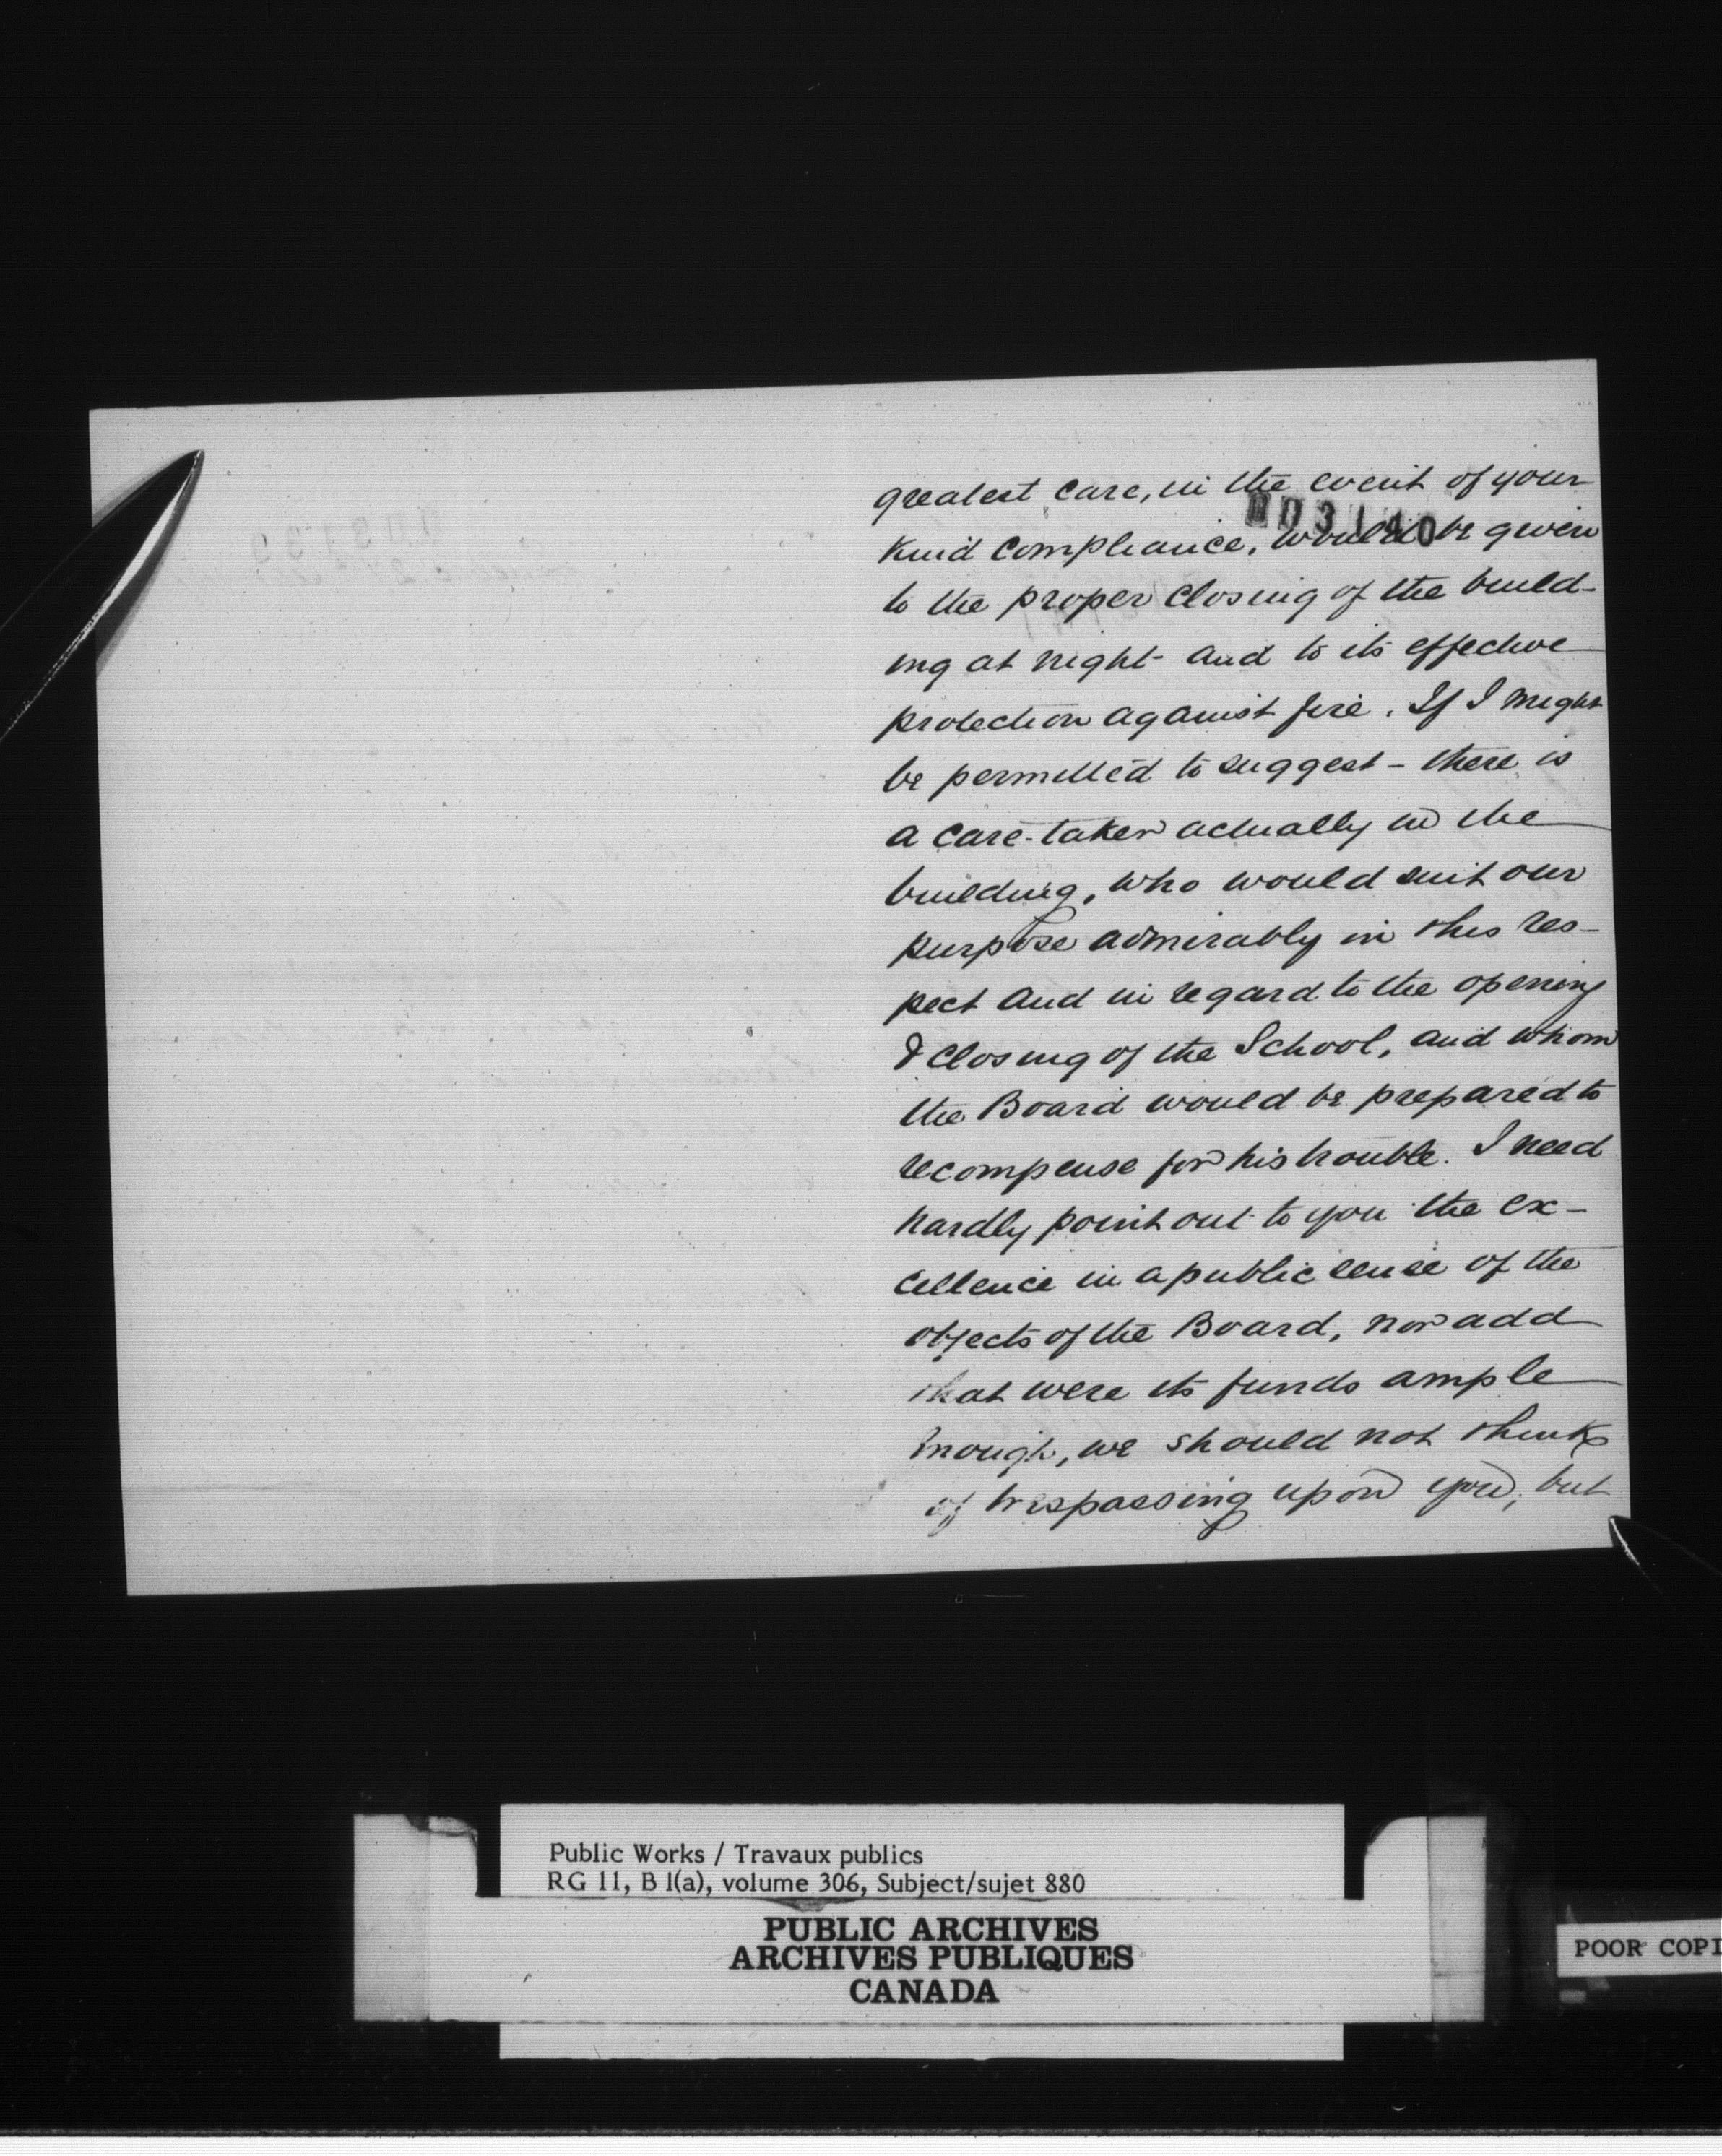 greatest care, in the event of your
003140
kind compliance, would be given
to the proper closing of the build-
ing at night - and to its effective
protection against fire. If I might
be permitted to suggest - there is
a care-taker actually in the
building, who would suit our
purpose admirably in this res-
pect and in regard to the opening
& closing of the School, and whom
the Board would be prepared to
recompense for his trouble. I need
hardly point out to you the ex-
cellence in a public sense of the
objects of the Board, nor add
that were its funds ample
enough, we should not think
of trespassing upon you; but
Public Works / Travaux publics
RG 11, B 1(a), volume 306, Subject/sujet 880
PUBLIC ARCHIVES
ARCHIVES PUBLIQUES
CANADA
POOR COPI